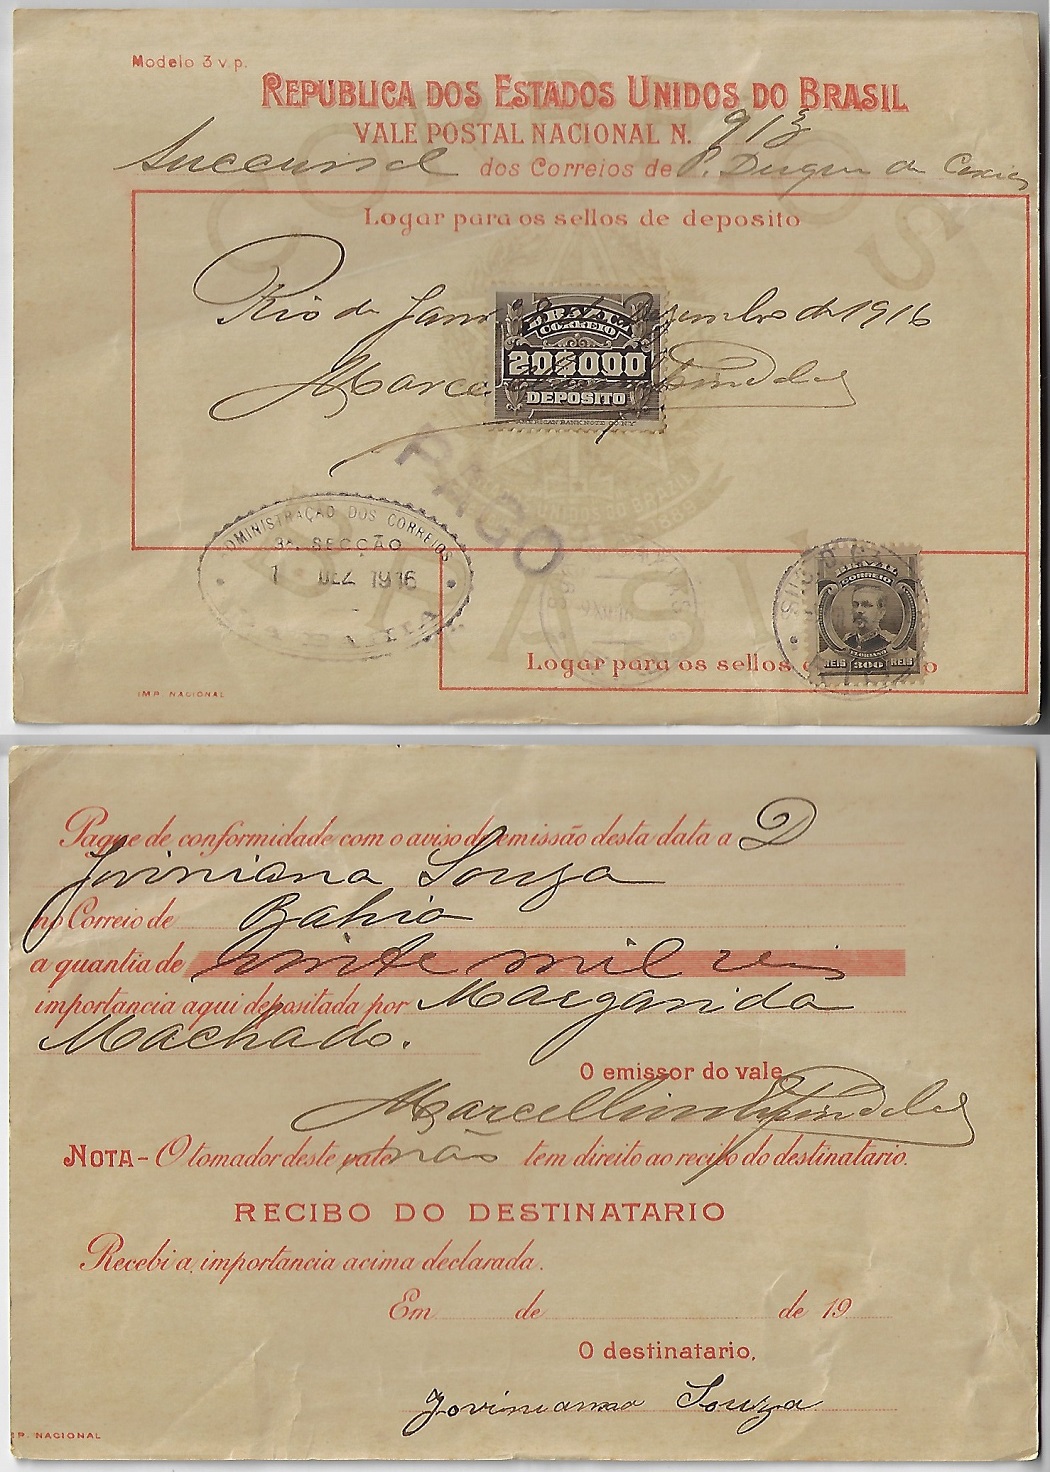 Modelo 3 v. p.
REPUBLICA DOS ESTADOS UNIDOS DO BRASIL
VALE POSTAL NACIONAL N. 913
Succursal dos Correios de P. Duque de Caxias
Logar para os sellos de deposito
Rio de Jan 9 de Dezembro de 1916
BRAZIL
CORREIO
20$000
DEPOSITO
AMERICAN BANK NOTE CO. N.Y.
PAGO
DMINISTRAÇÃO DOS CORREIOS
3ª SECÇÃO
1 DEZ 1916
BAHIA
CORREIOS
BRASIL
BRAZIL
CORREIO
FLORIANO
REIS 300 REIS
Logar para os sellos o
IMP. NACIONAL
Pague de conformidade com o aviso de emissão desta data a D
Joviniana Souza
no Correio de Bahia
a quantia de vinte mil reis
importancia aqui depositada por Margarida
Machado.
O emissor do vale
Marcellino
NOTA - O tomador deste vale não tem direito ao recibo do destinatario.
RECIBO DO DESTINATARIO
Recebi a importancia acima declarada.
Em de de 19
O destinatario,
Jovinianna Souza
P. NACIONAL